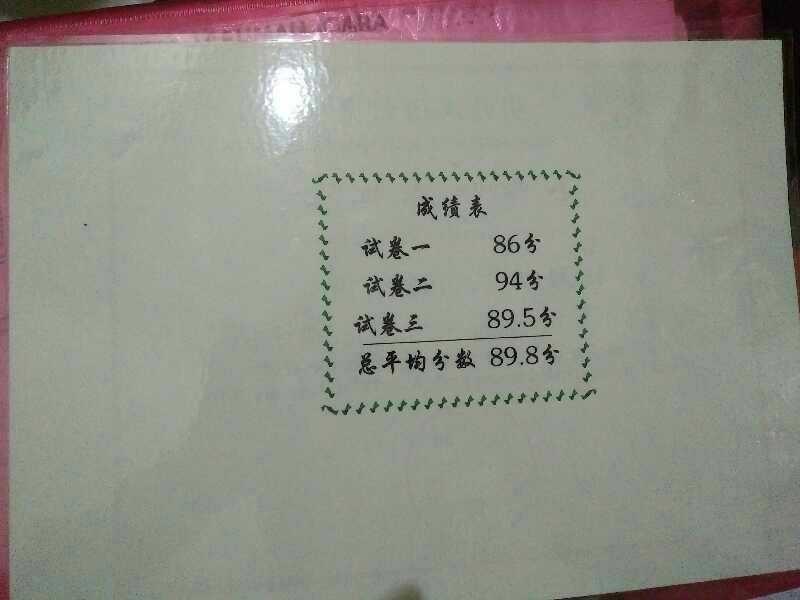 成绩表
试卷一 86分
试卷二 94分
试卷三 89.5分
总平均分数 89.8分